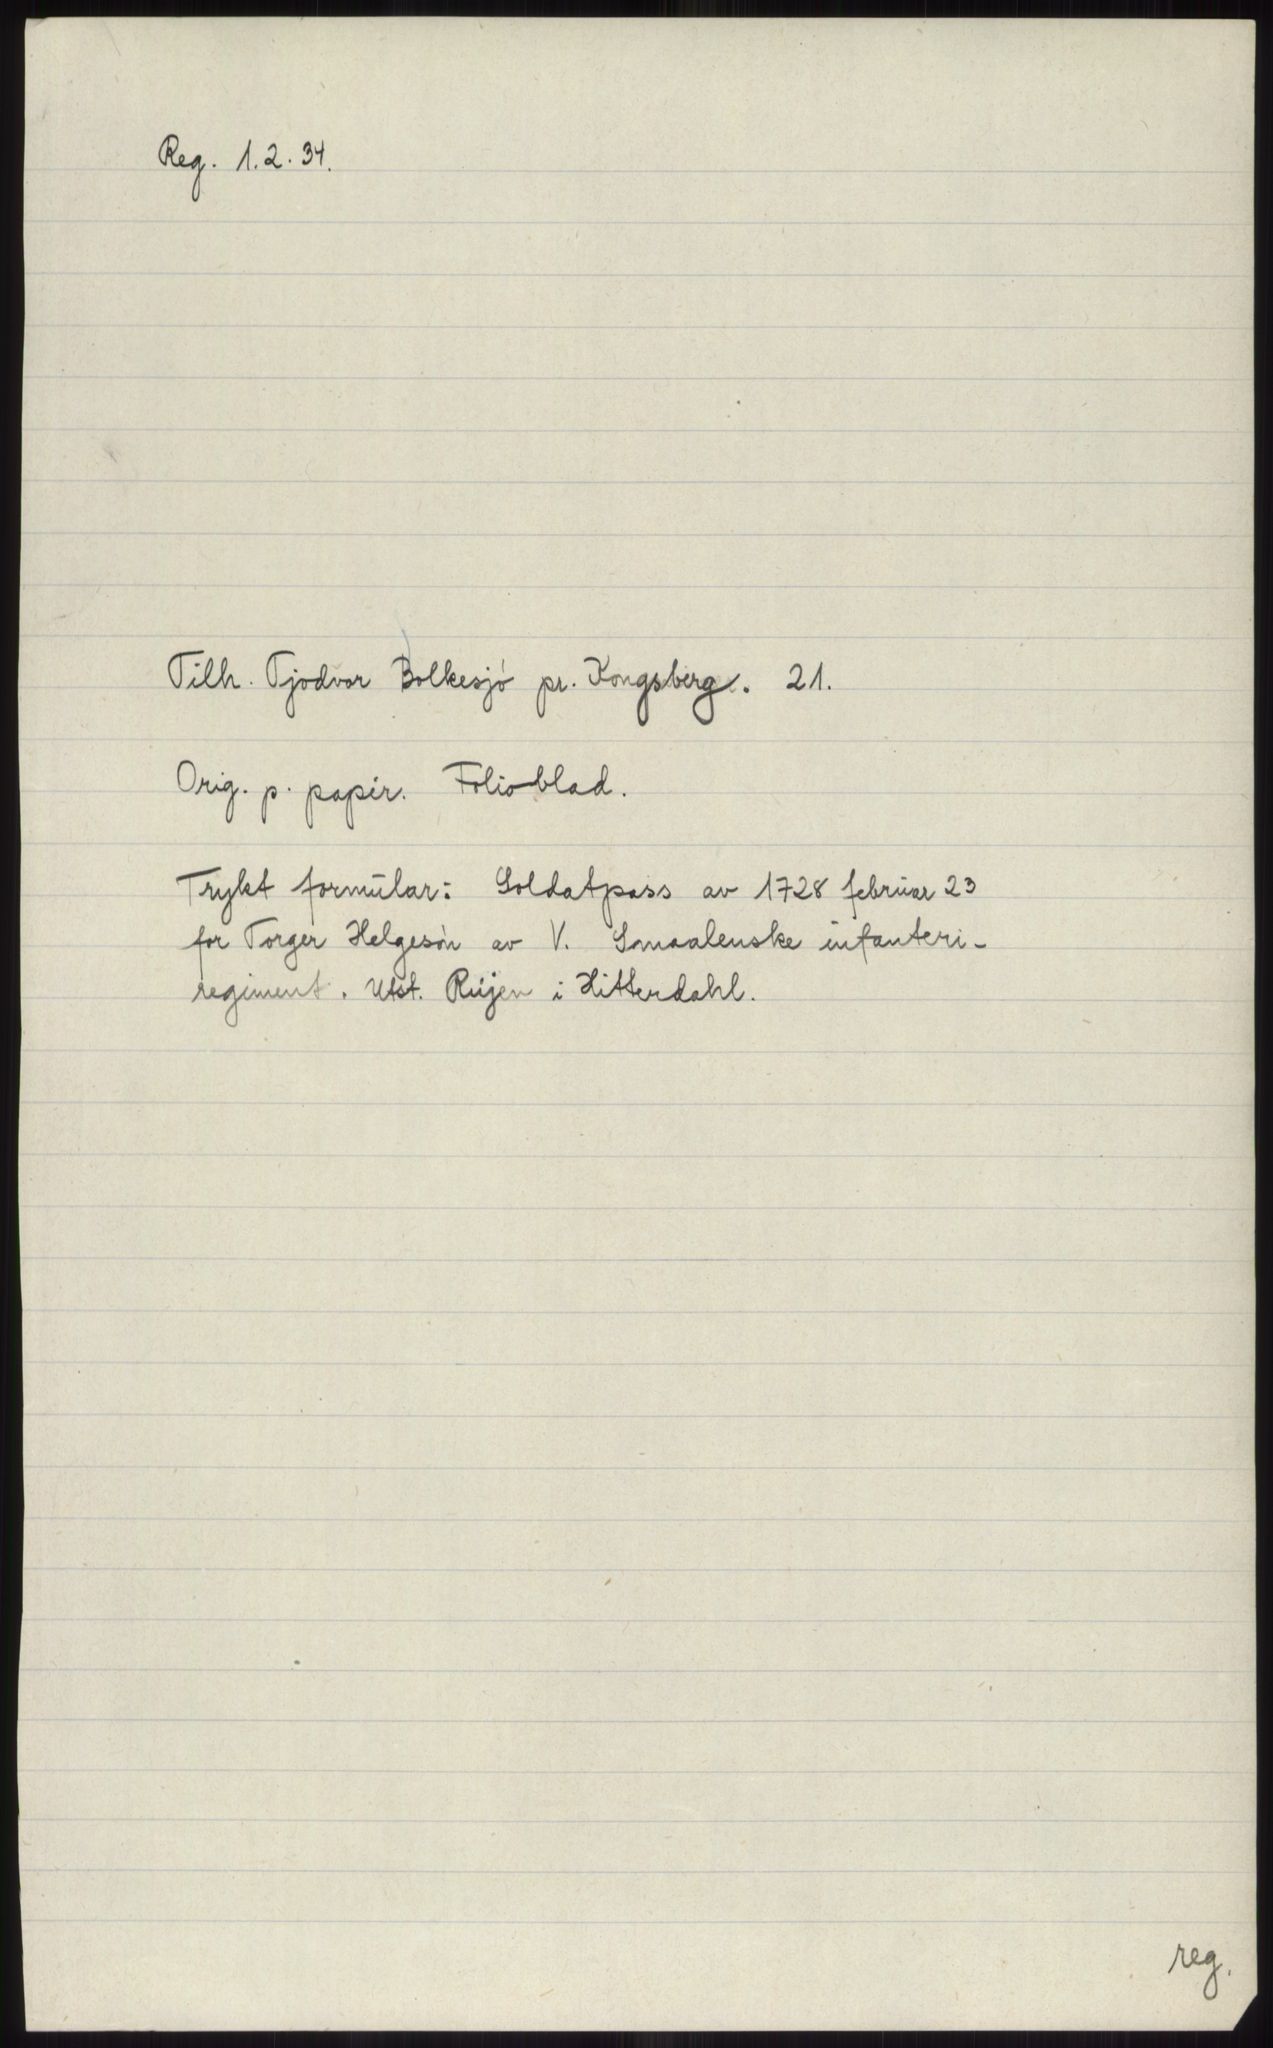 Reg. 1.2.34.
Tilh. Tjodvor Bolkesjö pr. Kongsberg. 21.
Orig. p. papir. Folioblad.
Trykt formular: Soldatpass av 1728 februar 23
for Torger Helgesön av V. Smaalenske infanteri-
regiment. Utst. Rujen i Hitterdahl.
reg.